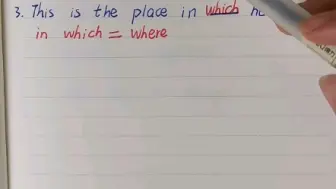 3. This is the place in which
in which = where